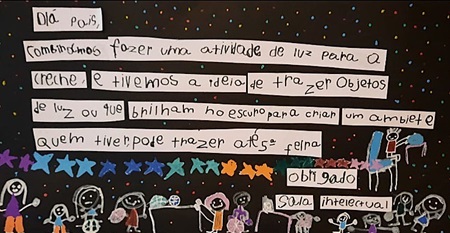 Olá pais,
combinámos fazer uma atividade de luz para a
creche, e tivemos a ideia de trazer objetos
de luz ou que brilham no escuro para criar um ambiete
quem tiver, pode trazer até 5ª feira
obrigado
Sala intelectual